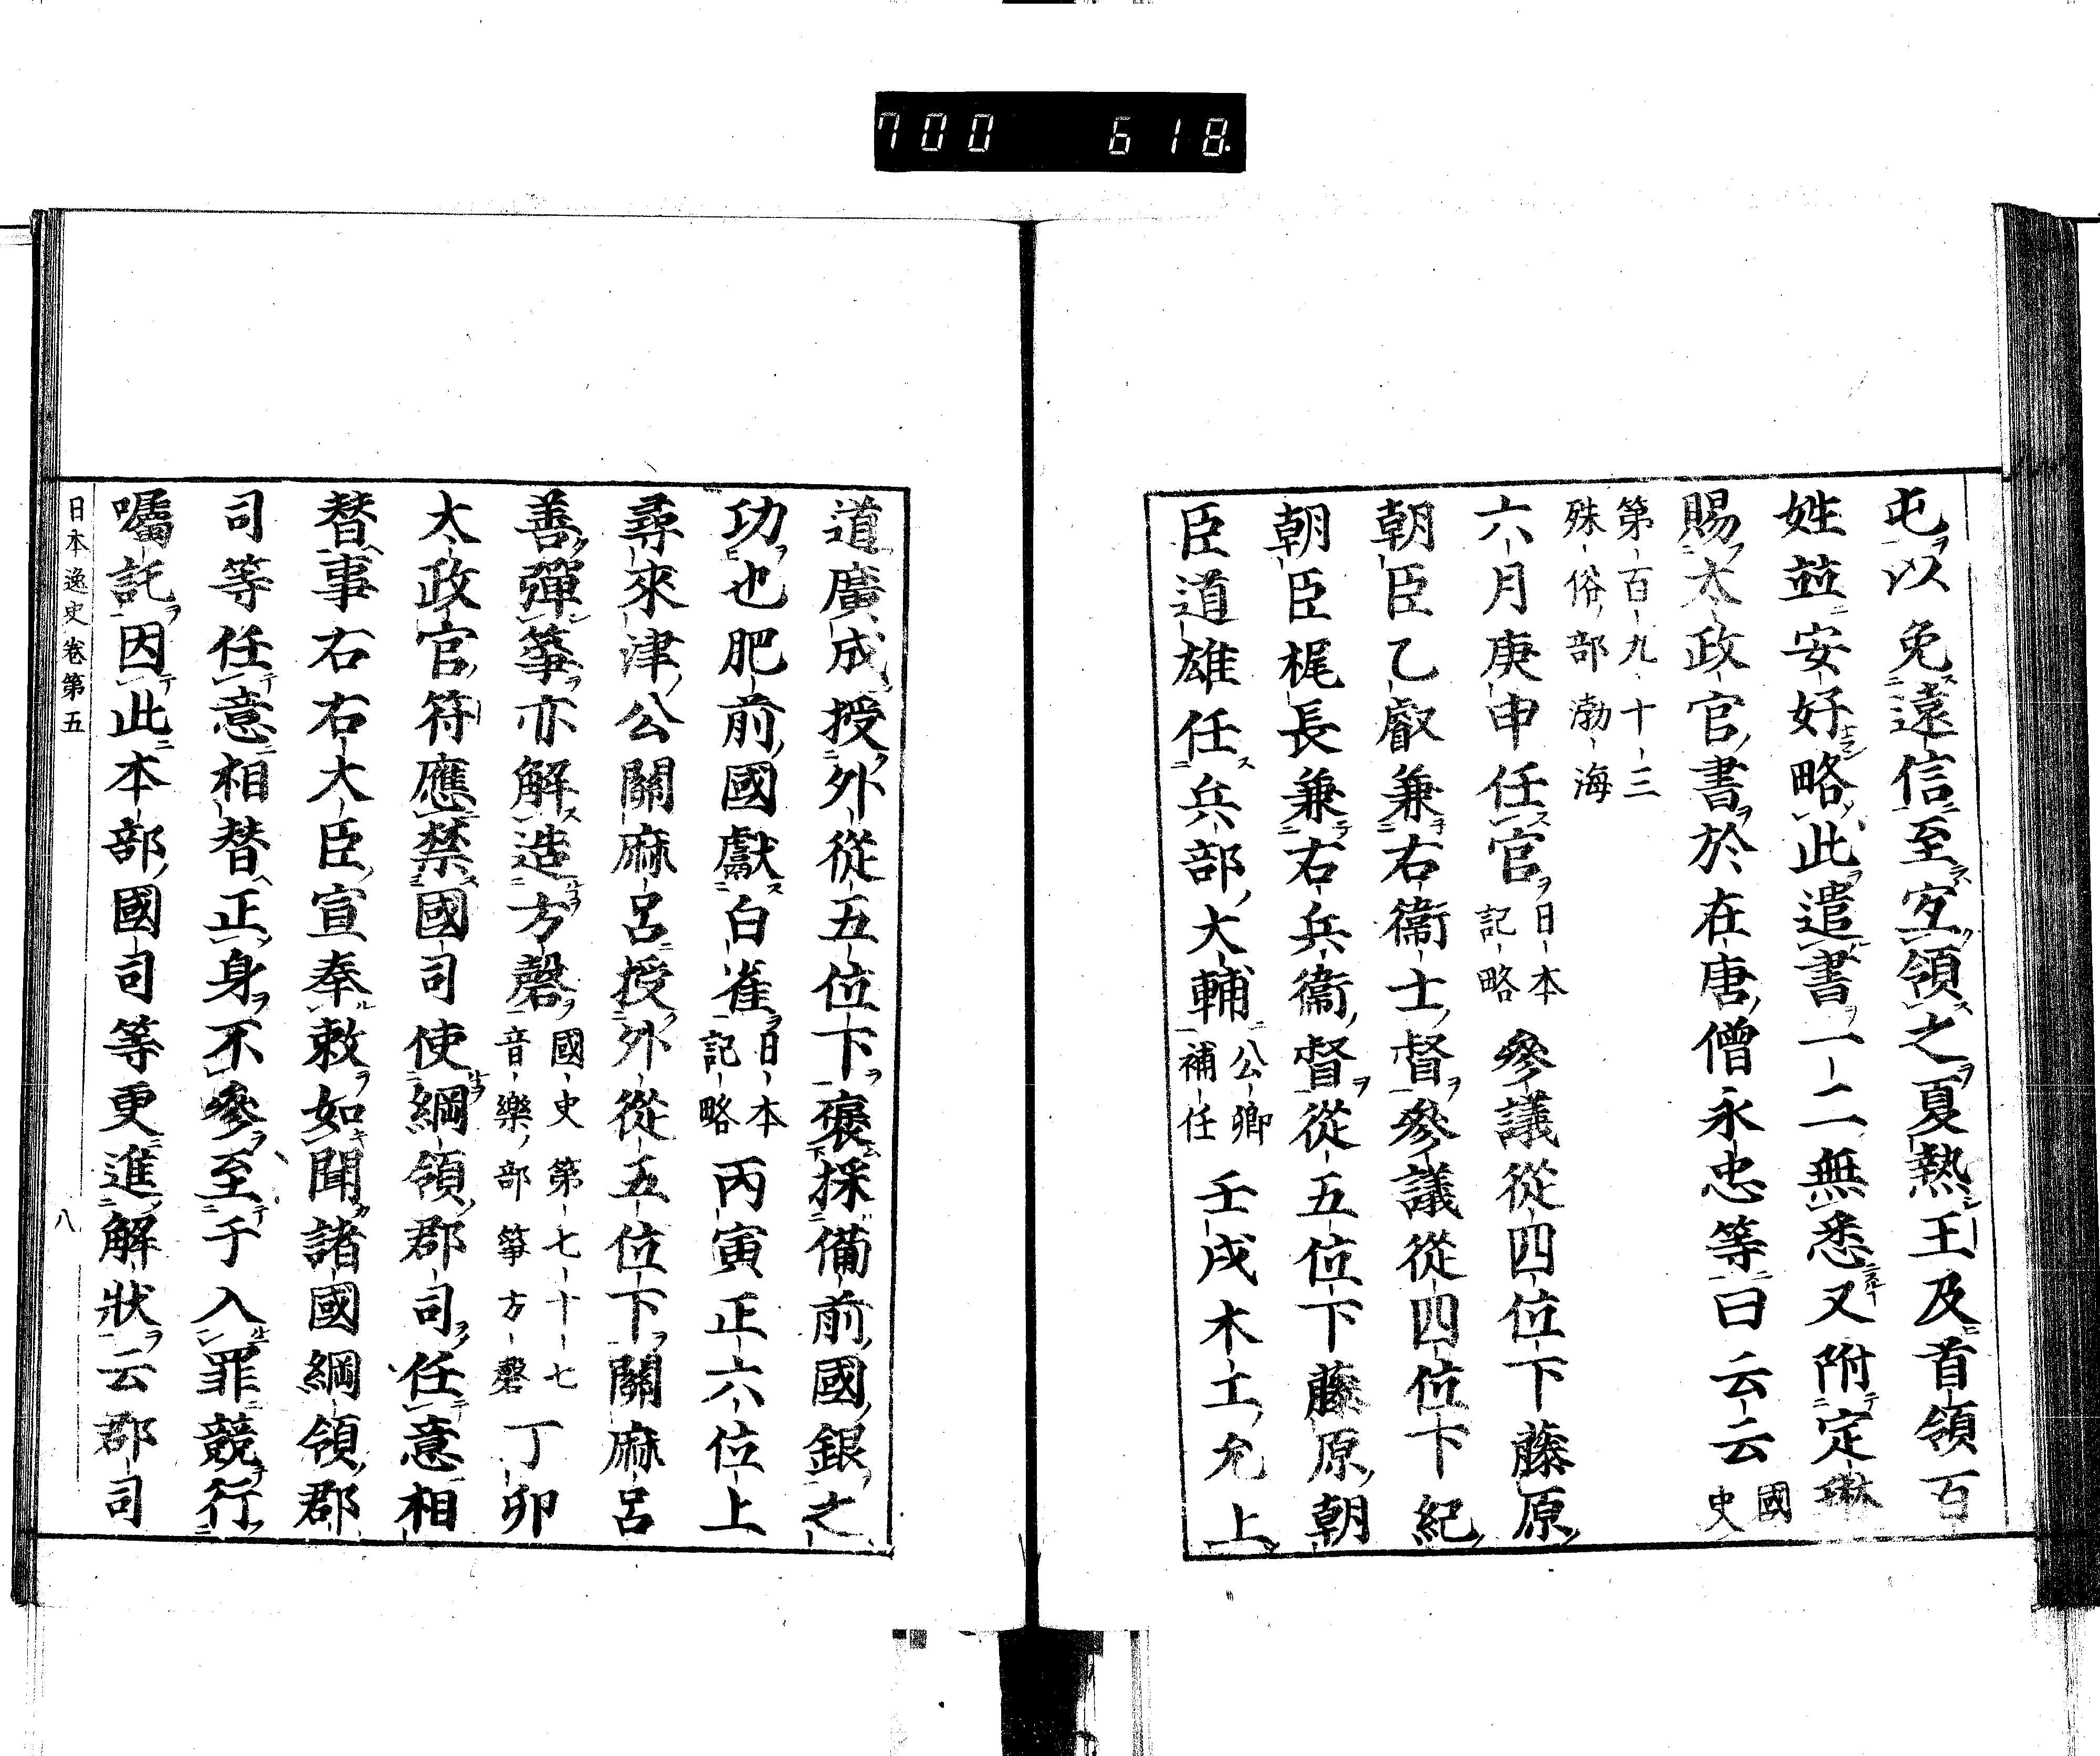 700 618
屯以免遠信至宜領之夏熱王及首領百
姓並安好略此遣書一二無悉又附定琳
賜太政官書於在唐僧永忠等曰云云國史
第百九十三
殊俗部渤海
六月庚申任官日本記略參議從四位下藤原
朝臣乙叡兼右衞士督參議從四位下紀
朝臣梶長兼右兵衞督從五位下藤原朝
臣道雄任兵部大輔公卿補任壬戌木工允上
道廣成授外從五位下褒採備前國銀之
功也肥前國獻白雀日本記略丙寅正六位上
尋來津公關麻呂授外從五位下關麻呂
善彈箏亦解造方磬國史第七十七音樂部箏方磬丁卯
太政官符應禁國司使綱領郡司任意相
替事右右大臣宣奉敕如聞諸國綱領郡
司等任意相替正身不參至于入罪競行
囑託因此本部國司等更進解狀云郡司
日本逸史卷第五
八